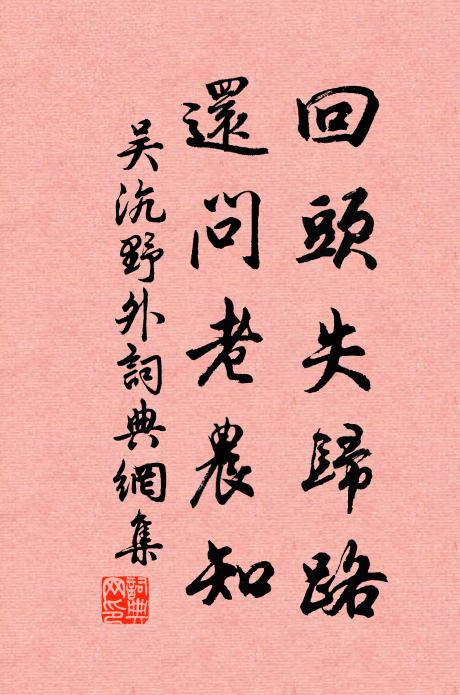 回頭失歸路
還問老農知
吴沆野外詞典網集
詞典
网印